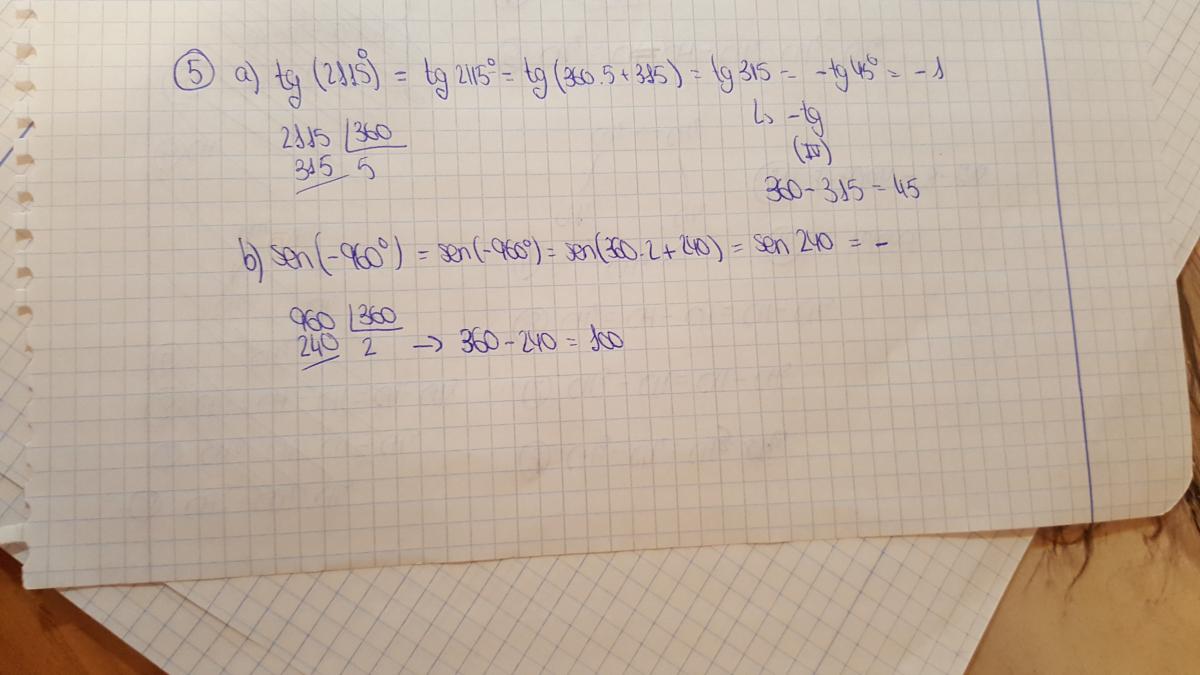 5 a) tg (2115°) = tg 2115° = tg (360·5+315) = tg 315 = -tg 45° = -1
↳ -tg
2115 | 360
(IV)
315 5
360-315 = 45
b) sen(-960°) = sen(-960°) = sen(360·2+240) = sen 240 = -
960 | 360
240 2 → 360-240 = 100